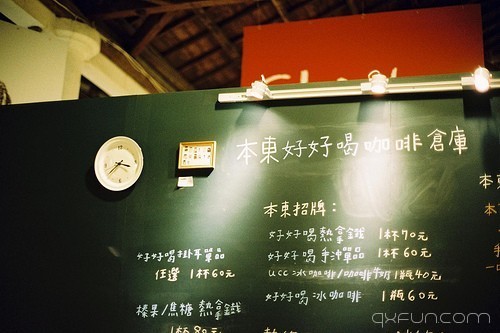 本東好好喝咖啡倉庫
本東招牌：
好好喝熱拿鐵 1杯70元
好好喝手沖單品 1杯60元
ucc 冰咖啡/咖啡牛奶 1瓶40元
好好喝冰咖啡 1瓶60元
好好喝掛耳單品
任選 1杯60元
榛果/焦糖 熱拿鐵
1杯80元
qxfun.com